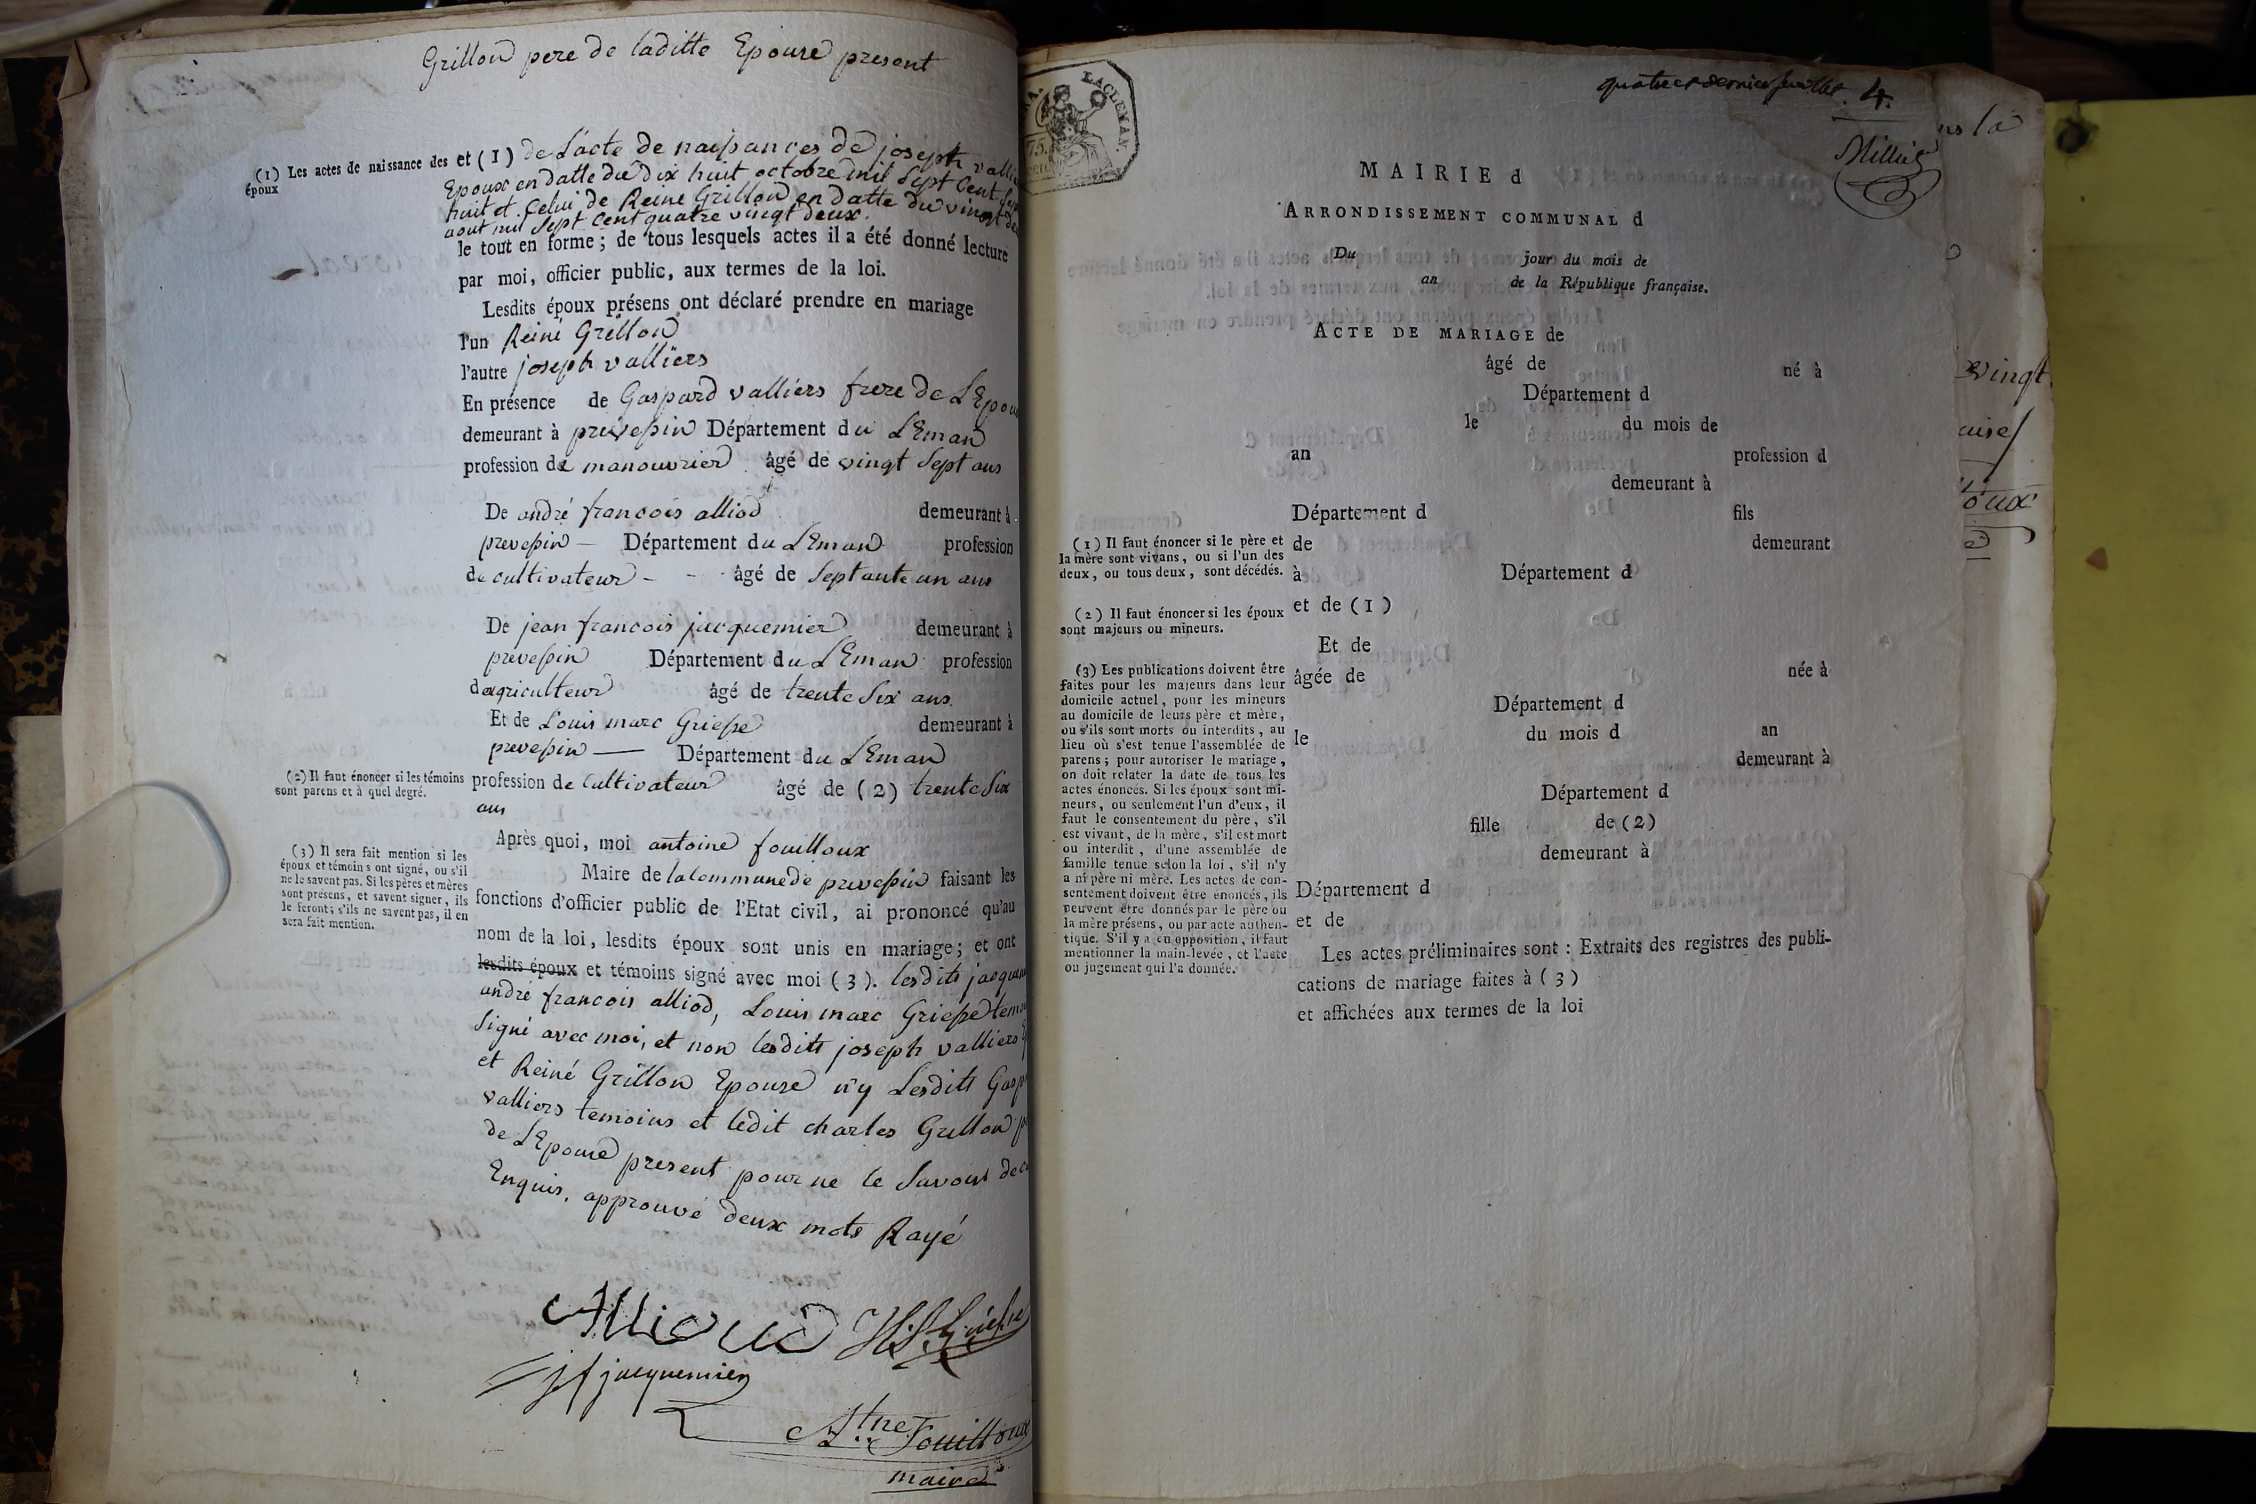 Grillon pere de laditte Epouse present
(1) Les actes de naissance des époux
et (1) de L'acte de naissances de joseph
Epoux en datte du dix huit octobre mil Sept Cent
huit et Celui de Reine Grillon en datte du vingt
aout mil Sept Cent quatre vingt deux.
le tout en forme ; de tous lesquels actes il a été donné lecture
par moi, officier public, aux termes de la loi.
Lesdits époux présens ont déclaré prendre en mariage
l'un Reiné Grillon
l'autre joseph valliers
En présence de Gaspard valliers frere de L'Epoux
demeurant à prevessin Département du LEman
profession de manouvrier âgé de vingt Sept ans
De andré francois alliod demeurant à
prevessin — Département du LEman profession
de cultivateur - - âgé de Septante un ans
De jean francois jacquemier demeurant à
prevessin Département du LEman profession
dagriculteur âgé de trente Six ans
Et de Louis marc Griesse demeurant à
prevessin — Département du LEman
(2) Il faut énoncer si les témoins
sont parens et à quel degré.
profession de Cultivateur âgé de (2) trente Six
ans
Après quoi, moi antoine fouilloux
Maire de la Commune de prevessin faisant les
fonctions d'officier public de l'Etat civil, ai prononcé qu'au
nom de la loi, lesdits époux sont unis en mariage ; et ont
lesdits époux et témoins signé avec moi (3). lesdits
(3) Il sera fait mention si les
époux et témoins ont signé, ou s'il
ne le savent pas. Si les pères et mères
sont présens, et savent signer, ils
le feront ; s'ils ne savent pas, il en
sera fait mention.
andré francois alliod, Louis marc Griesse
Signé avec moi, et non lesdits joseph valliers
et Reiné Grillon Epouse n'y Lesdits
valliers temoins et ledit charles Grillon
de LEpouse present pour ne le Savoir de ce
Enquis. approuvé deux mots Rayé
Allioud
jf jacquemier
Atne Fouilloux
maire
quatre et dernier feuillet. 4.
LACLEMAN.
75
MAIRIE d
ARRONDISSEMENT COMMUNAL d
Du jour du mois de
an de la République française.
ACTE DE MARIAGE de
âgé de né à
Département d
le du mois de
an profession d
demeurant à
Département d fils
de demeurant
à Département d
et de (1)
(1) Il faut énoncer si le père et
la mère sont vivans, ou si l'un des
deux, ou tous deux, sont décédés.
(2) Il faut énoncer si les époux
sont majeurs ou mineurs.
Et de
âgée de née à
Département d
le du mois d an
demeurant à
Département d
fille de (2)
demeurant à
Département d
et de
(3) Les publications doivent être
faites pour les majeurs dans leur
domicile actuel, pour les mineurs
au domicile de leurs père et mère,
ou s'ils sont morts ou interdits, au
lieu où s'est tenue l'assemblée de
parens ; pour autoriser le mariage,
on doit relater la date de tous les
actes énoncés. Si les époux sont mi-
neurs, ou seulement l'un d'eux, il
faut le consentement du père, s'il
est vivant, de la mère, s'il est mort
ou interdit, d'une assemblée de
famille tenue selon la loi, s'il n'y
a ni père ni mère. Les actes de con-
sentement doivent être énoncés, ils
peuvent être donnés par le père ou
la mère présens, ou par acte authen-
tique. S'il y a eu opposition, il faut
mentionner la main-levée, et l'acte
ou jugement qui l'a donnée.
Les actes préliminaires sont : Extraits des registres des publi-
cations de mariage faites à (3)
et affichées aux termes de la loi
vingt